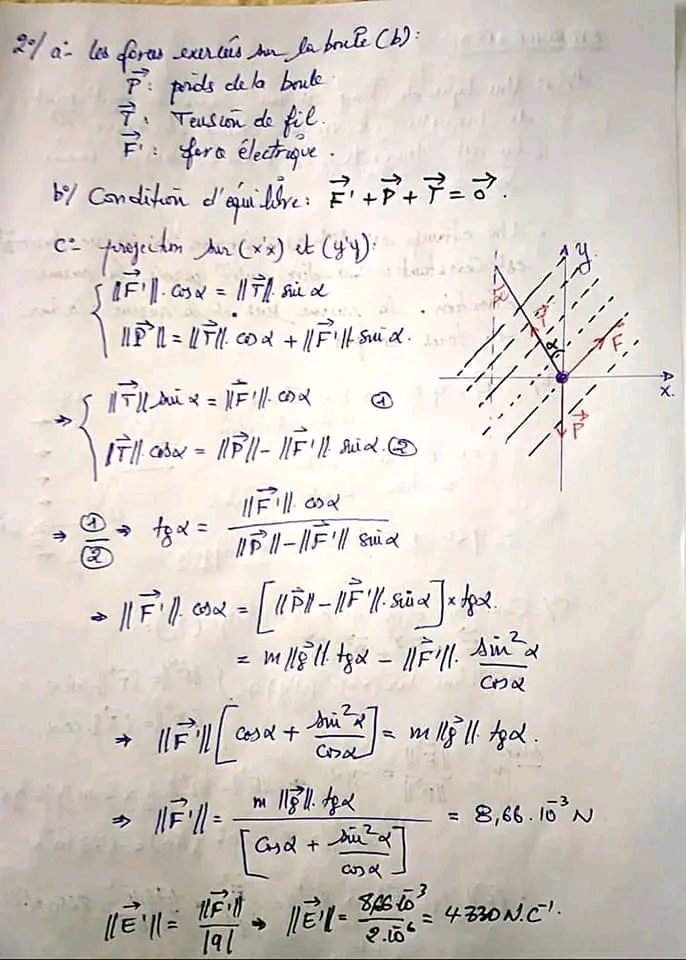 2°/ a°- les forces exercées sur la boule (b):
P⃗ : poids de la boule
T⃗ : Tension de fil.
F⃗' : force électrique.
b°/ Condition d'équilibre: F⃗' + P⃗ + T⃗ = 0⃗.
c°- projection sur (x'x) et (y'y):
{ ||F⃗'||. cosα = ||T⃗||. sinα
||P⃗|| = ||T⃗||. cosα + ||F⃗'||. sinα.
⇒ { ||T⃗|| sinα = ||F⃗'||. cosα ①
||T⃗|| cosα = ||P⃗|| - ||F⃗'||. sinα. ②
⇒ ①/② ⇒ tgα = ||F⃗'||. cosα / ||P⃗|| - ||F⃗'|| sinα
⇒ ||F⃗'||. cosα = [||P⃗|| - ||F⃗'||. sinα] × tgα.
= m ||g⃗||. tgα - ||F⃗'||. sin²α / cosα
⇒ ||F⃗'|| [cosα + sin²α / cosα] = m ||g⃗||. tgα.
⇒ ||F⃗'|| = m ||g⃗||. tgα / [cosα + sin²α / cosα] = 8,66. 10⁻³ N
||E⃗'|| = ||F⃗'|| / |q| ⇒ ||E⃗'|| = 8,66 10⁻³ / 2. 10⁻⁶ = 4330 N.C⁻¹.
y
α
T⃗
α
F⃗
x
P⃗